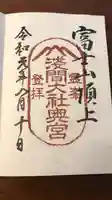 富士山頂上
淺間大社奥宮
登拝
令和元年八月十日